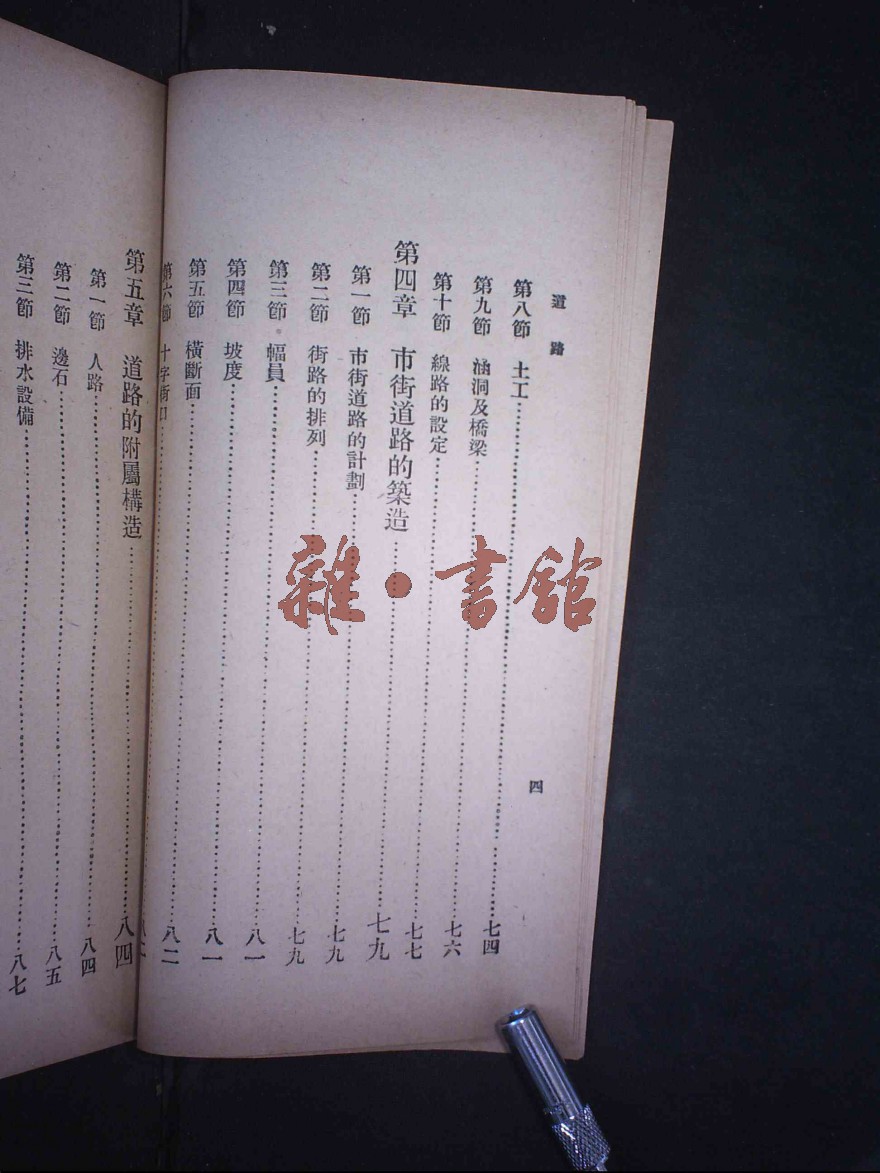 道路
四
第八節 土工……七四
第九節 涵洞及橋梁……七六
第十節 線路的設定……七七
第四章 市街道路的築造……七九
第一節 市街道路的計劃……七九
第二節 街路的排列……七九
第三節 幅員……八一
第四節 坡度……八一
第五節 橫斷面……八二
第六節 十字街口……八二
第五章 道路的附屬構造……八四
第一節 人路……八四
第二節 邊石……八五
第三節 排水設備……八七
雜·書館